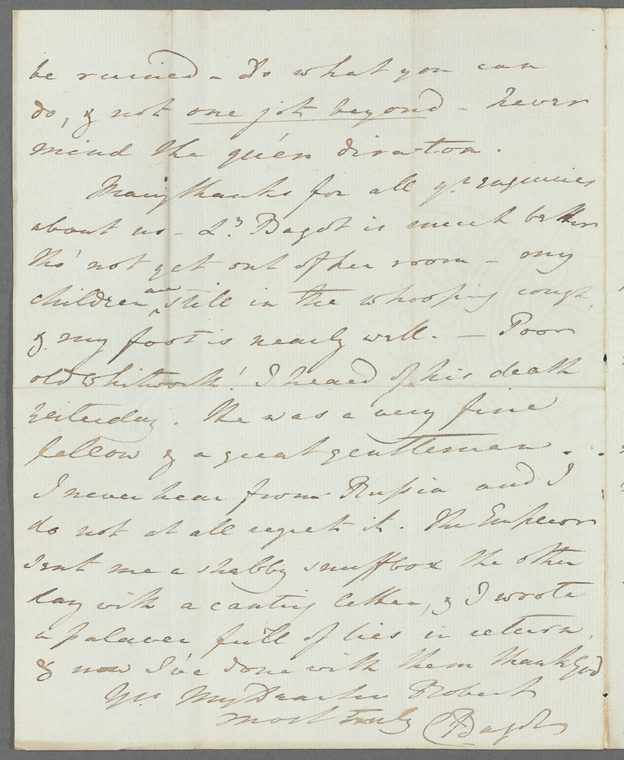 be ruined - Do what you can
do, & not one jot beyond - Never
mind the direction.
Many thanks for all yr. enquiries
about us - Ly. Bagot is much better
tho' not yet out of her room - my
children are still in the whooping cough,
& my foot is nearly well. - Poor
old Whitworth! I heard of his death
yesterday. He was a very fine
fellow & a great gentleman.
I never hear from Russia and I
do not at all regret it. The Emperor
sent me a shabby snuffbox the other
day with a canting letter, & I wrote
a palaver full of lies in return,
& now I've done with them thank God
Yrs. My Dear Robert
most truly CBagot